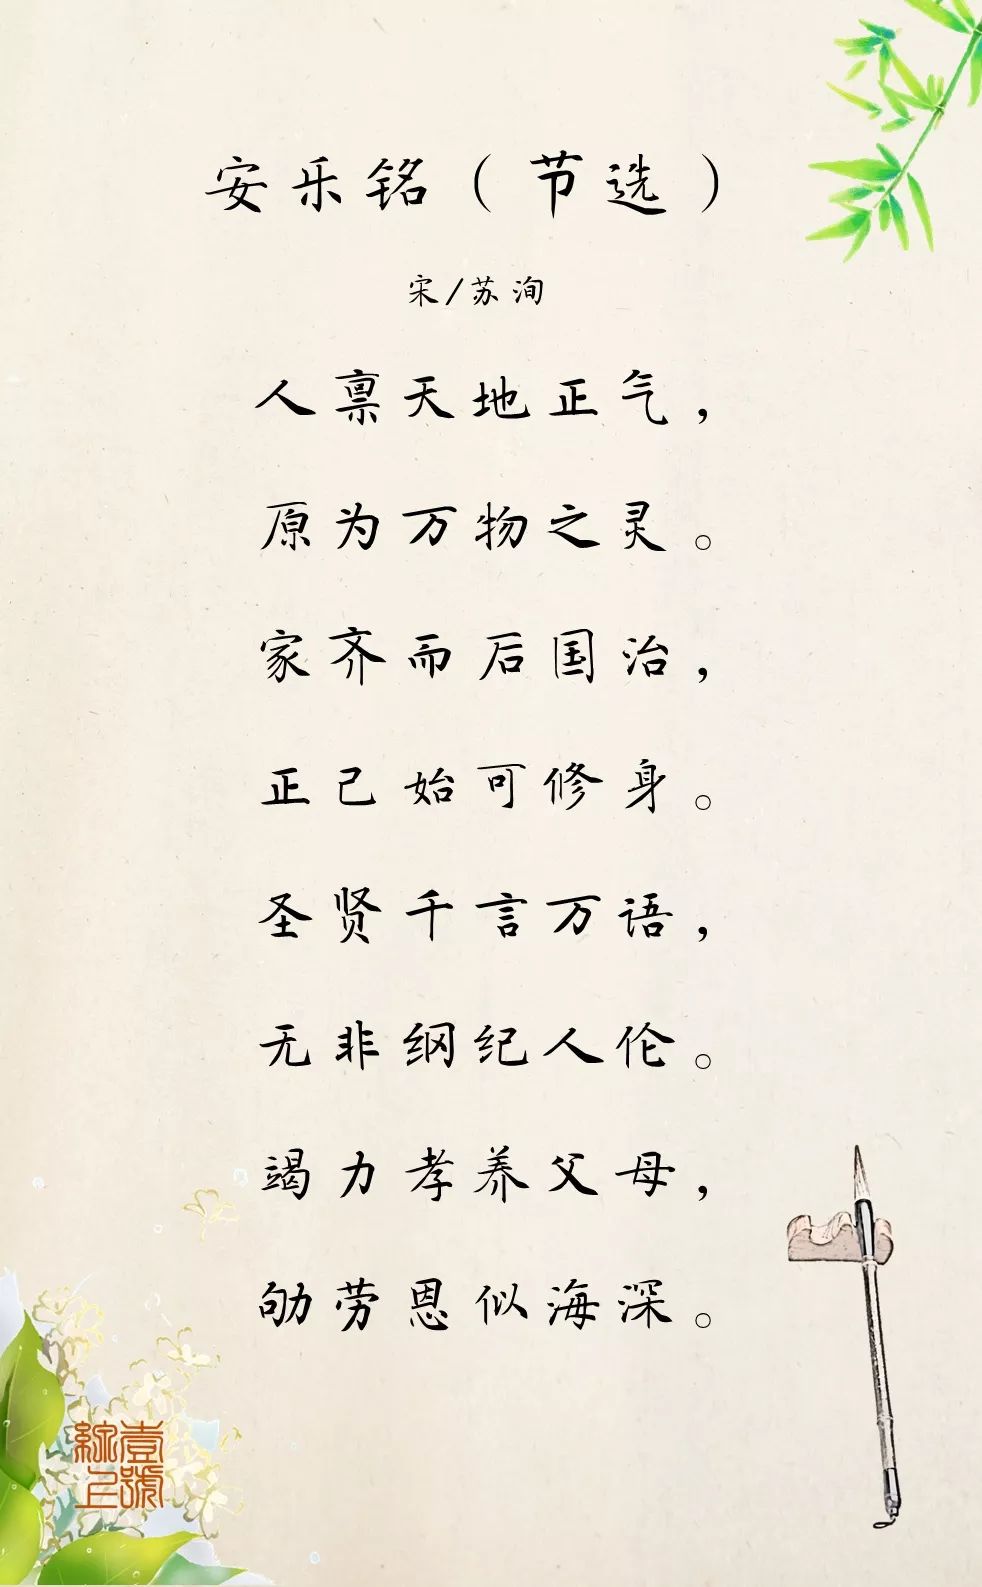 安乐铭（节选）
宋/苏洵
人禀天地正气，
原为万物之灵。
家齐而后国治，
正己始可修身。
圣贤千言万语，
无非纲纪人伦。
竭力孝养父母，
劬劳恩似海深。
壹號
綜上